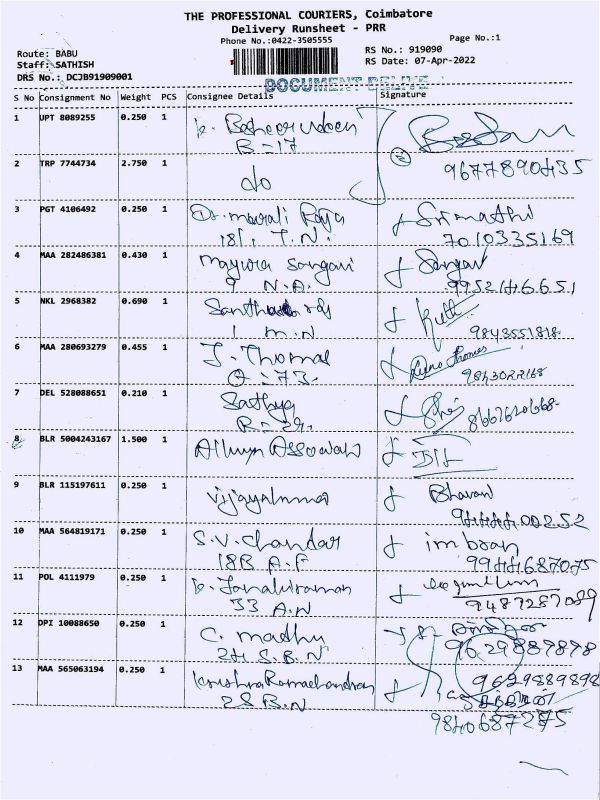 THE PROFESSIONAL COURIERS, Coimbatore
Delivery Runsheet - PRR
Phone No.:0422-3505555
Page No.:1
Route: BABU
RS No.: 919090
Staff: SATHISH
RS Date: 07-Apr-2022
DRS No.: DCJB91909001
DOCUMENT DELITE
S No Consignment No Weight PCS Consignee Details Signature
1 UPT 8089255 0.250 1
B-17
2 TRP 7744734 2.750 1 do
9677890435
3 PGT 4106492 0.250 1 Dr. murali Raja Srimathi
181, T.N. 7010335169
4 MAA 282486381 0.430 1 mayura Sangavi Sangavi
9 N.A.
5 NKL 2968382 0.690 1
1 m.N 9843551818
6 MAA 280693279 0.455 1 J. Thomas Thomas
9843022168
7 DEL 528088651 0.210 1 Sathya
B-29.
8 BLR 5004243167 1.500 1
9 BLR 115197611 0.250 1 Vijayalmma Bhavani
9444400252
10 MAA 564819171 0.250 1 S.V. Chandar
18B A.F 9944687075
11 POL 4111979 0.250 1
33 A.N 9487287089
12 DPI 10088650 0.250 1 C. madhu
24 S.B.N 9629889898
13 MAA 565063194 0.250 1 Krishna Ramachandran 9629889898
28 B.N
9840687275